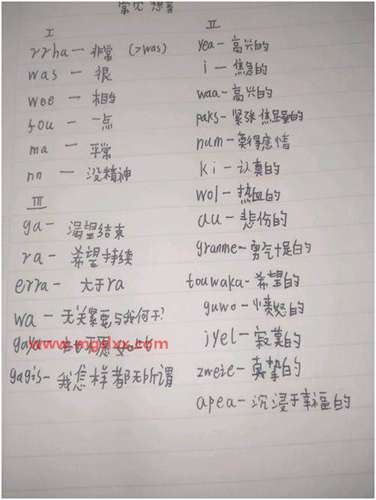 常见 想音
I
rrha — 非常 (>was)
was — 很
wee — 相当
fou — 一点
ma — 平常
nn — 没精神
III
ga — 渴望结束
ra — 希望持续
erra — 大于ra
wa — 无关紧要与我何干?
gaya
www.mgdxx.com
gagis — 我怎样都无所谓
II
yea — 高兴的
i — 焦急的
waa — 高兴的
paks — 紧张
num — 莫得感情
ki — 认真的
wol — 热血的
au — 悲伤的
granme — 勇气十足的
touwaka — 希望的
guwo — 愤怒的
iyel — 寂莫的
zweie — 真挚的
apea — 沉浸于幸福的